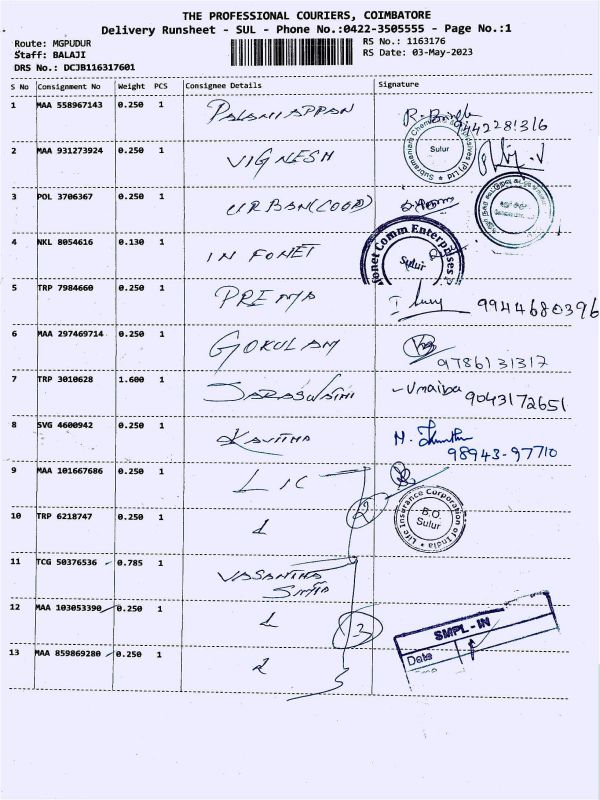 THE PROFESSIONAL COURIERS, COIMBATORE
Delivery Runsheet - SUL - Phone No.:0422-3505555 - Page No.:1
Route: MGPUDUR
Staff: BALAJI
DRS No.: DCJB116317601
RS No.: 1163176
RS Date: 03-May-2023
S No Consignment No Weight PCS Consignee Details Signature
1 MAA 558967143 0.250 1 PALANIAPPAN
9442281316
Sulur
2 MAA 931273924 0.250 1 VIGNESH
3 POL 3706367 0.250 1 URBAN(COOP)
4 NKL 8054616 0.130 1 IN FONET
fonet Comm Enterprises
Sulur
5 TRP 7984660 0.250 1 PREMA
9944680396
6 MAA 297469714 0.250 1 GOKULAM
9786131317
7 TRP 3010628 1.600 1 SARASWATHI
Umaiba 9043172651
8 SVG 4600942 0.250 1 KAVITHA
98943-97710
9 MAA 101667686 0.250 1 LIC
2
Life Insurance Corporation of India
B.O.
Sulur
10 TRP 6218747 0.250 1
11 TCG 50376536 0.785 1 VASANTHA
12 MAA 103053390 0.250 1
3
SMPL - IN
Date
13 MAA 859869280 0.250 1